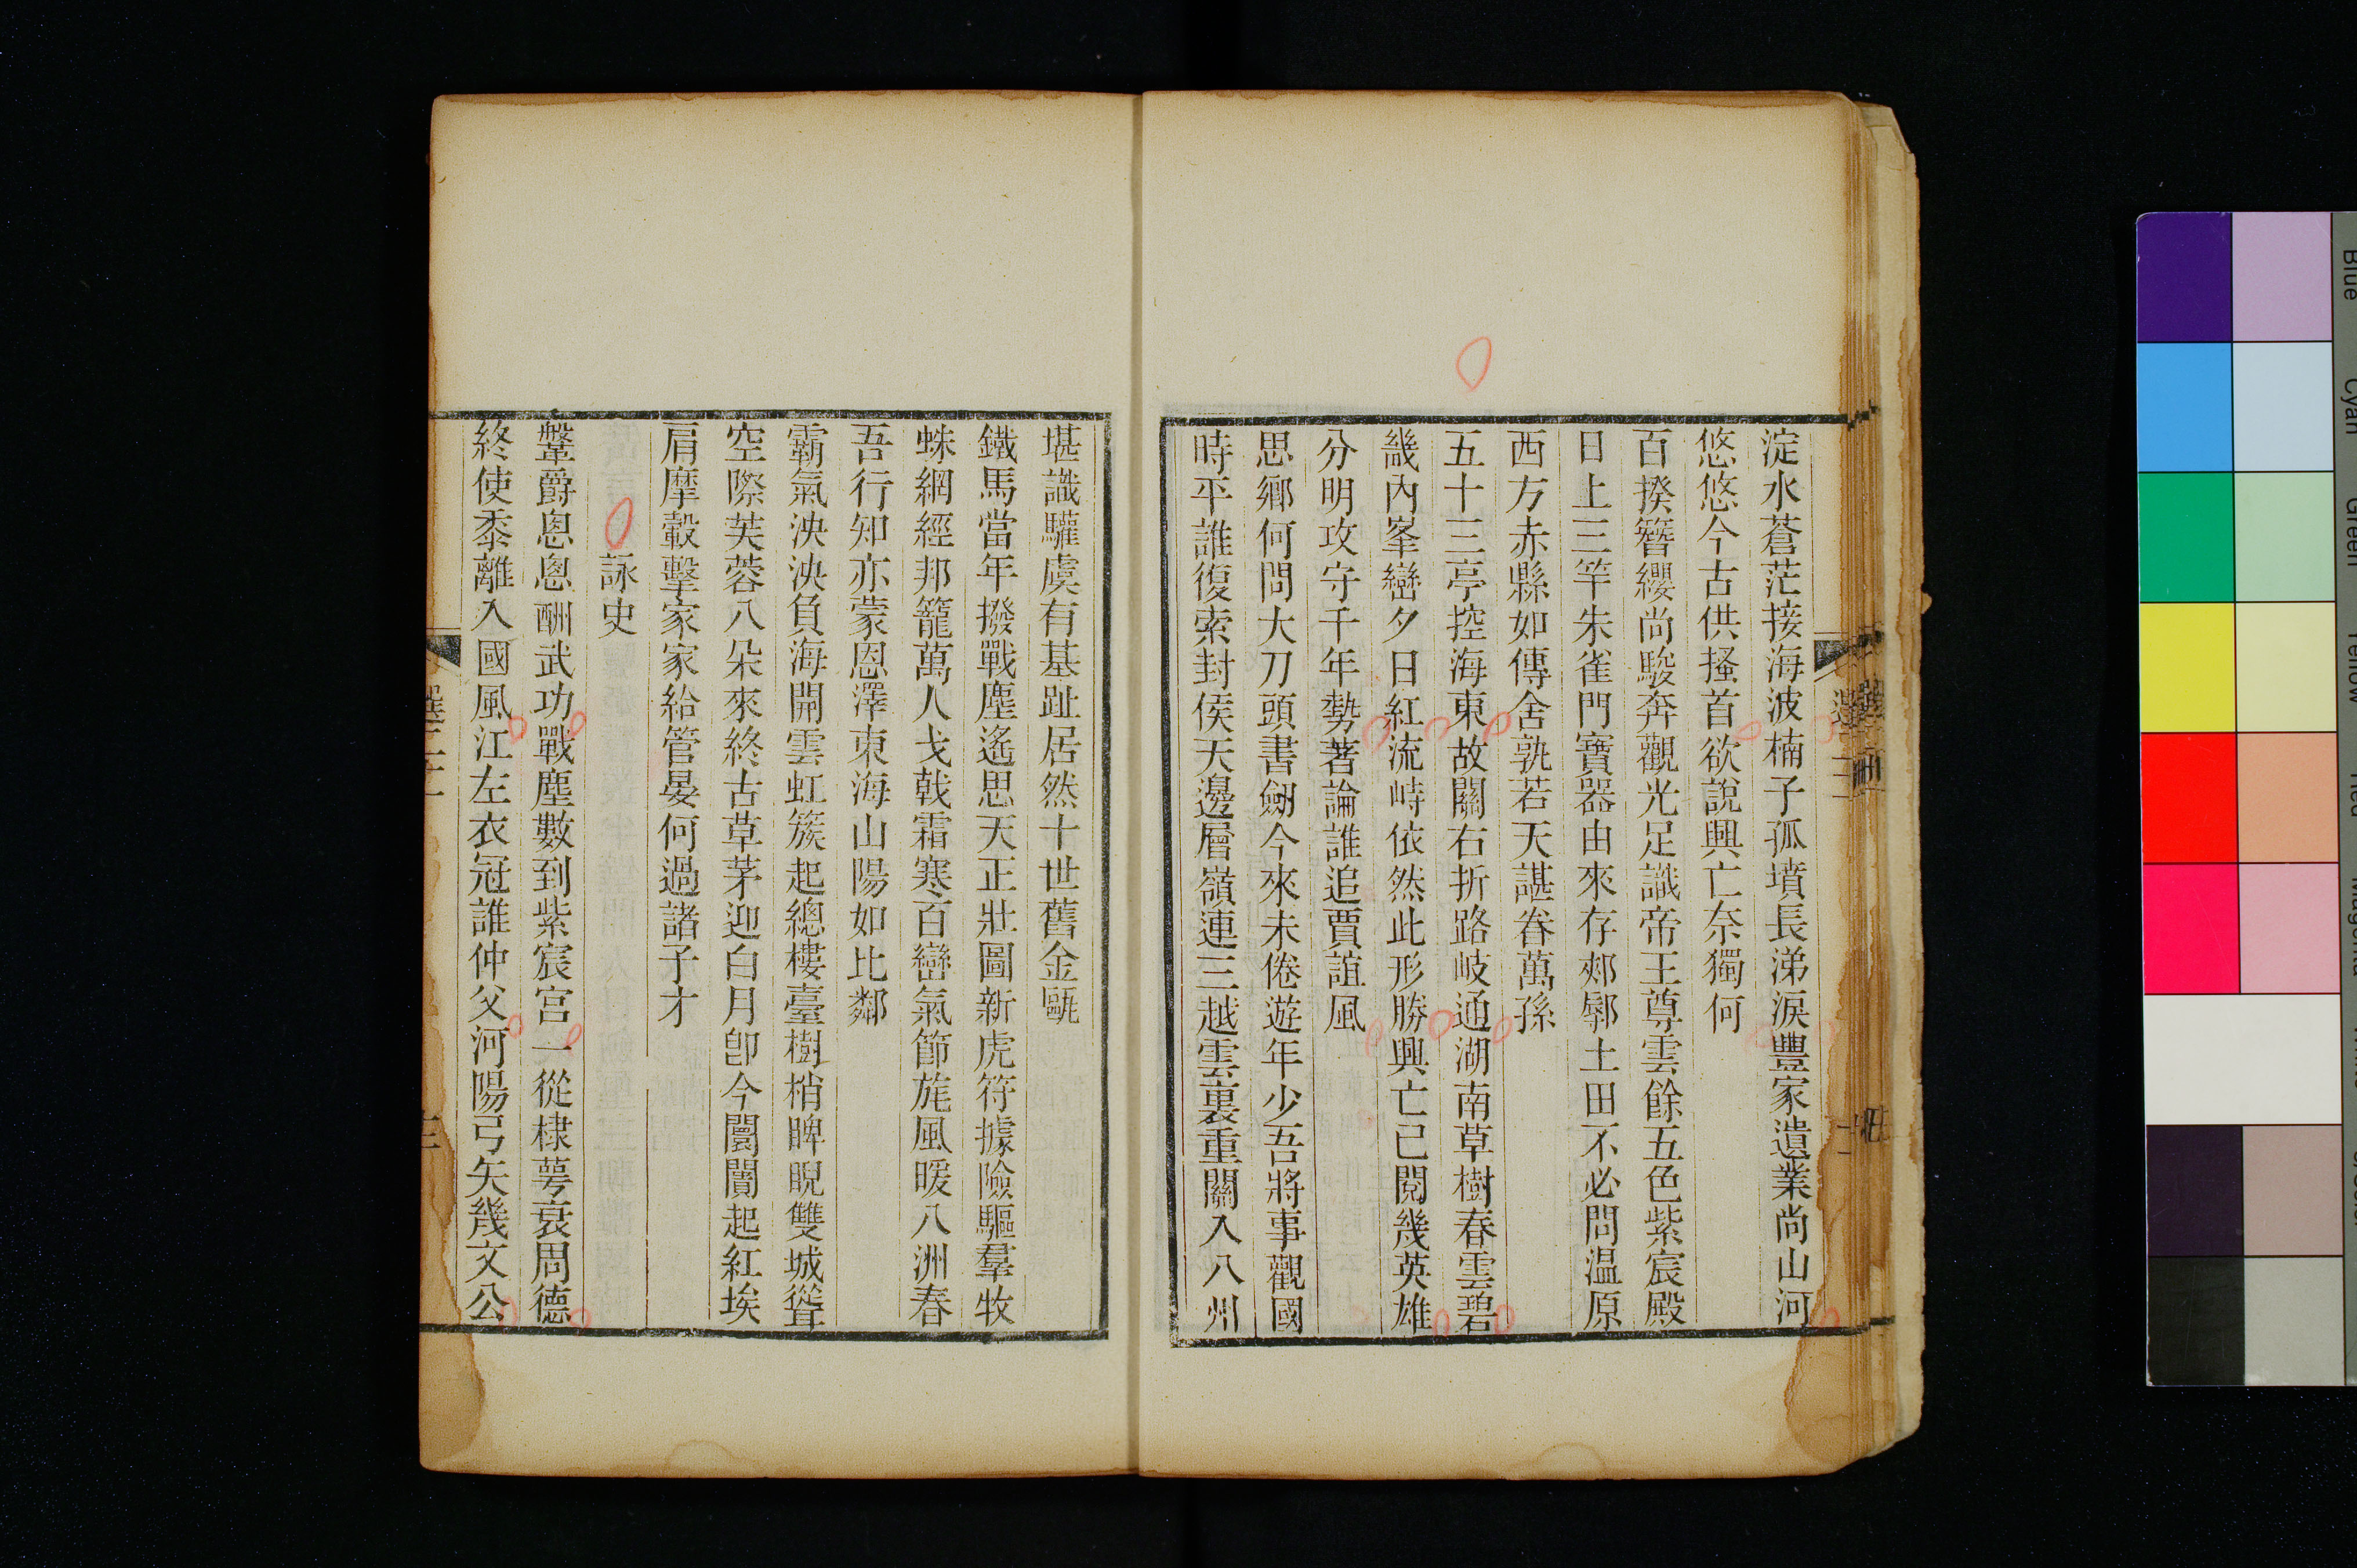 淀水蒼茫接海波楠子孤墳長涕淚豐家遺業尚山河
悠悠今古供搔首欲說興亡奈獨何
百揆簪纓尚駿奔觀光足識帝王尊雲餘五色紫宸殿
日上三竿朱雀門寶器由來存郟鄏土田不必問温原
西方赤縣如傳舍孰若天諶眷萬孫
五十三亭控海東故關右折路岐通湖南草樹春雲碧
畿內峯巒夕日紅流峙依然此形勝興亡已閱幾英雄
分明攻守千年勢著論誰追賈誼風
思鄉何問大刀頭書劒今來未倦遊年少吾將事觀國
時平誰復索封侯天邊層嶺連三越雲裏重關入八州
堪識驩虞有基趾居然十世舊金甌
鐵馬當年撥戰塵遙思天正壯圖新虎符據險驅羣牧
蛛網經邦籠萬人戈戟霜寒百巒氣節旄風暖八洲春
吾行知亦蒙恩澤東海山陽如比鄰
霸氣泱泱負海開雲虹簇起總樓臺樹梢睥睨雙城聳
空際芙蓉八朵來終古草茅迎白月卽今闤闠起紅埃
肩摩轂擊家家給管晏何過諸子才
詠史
鞶爵恩恩酬武功戰塵數到紫宸宮一從棣萼衰周德
終使黍離入國風江左衣冠誰仲父河陽弓矢幾文公
Blue
Cyan
Green
Yellow
Red
Magenta
White